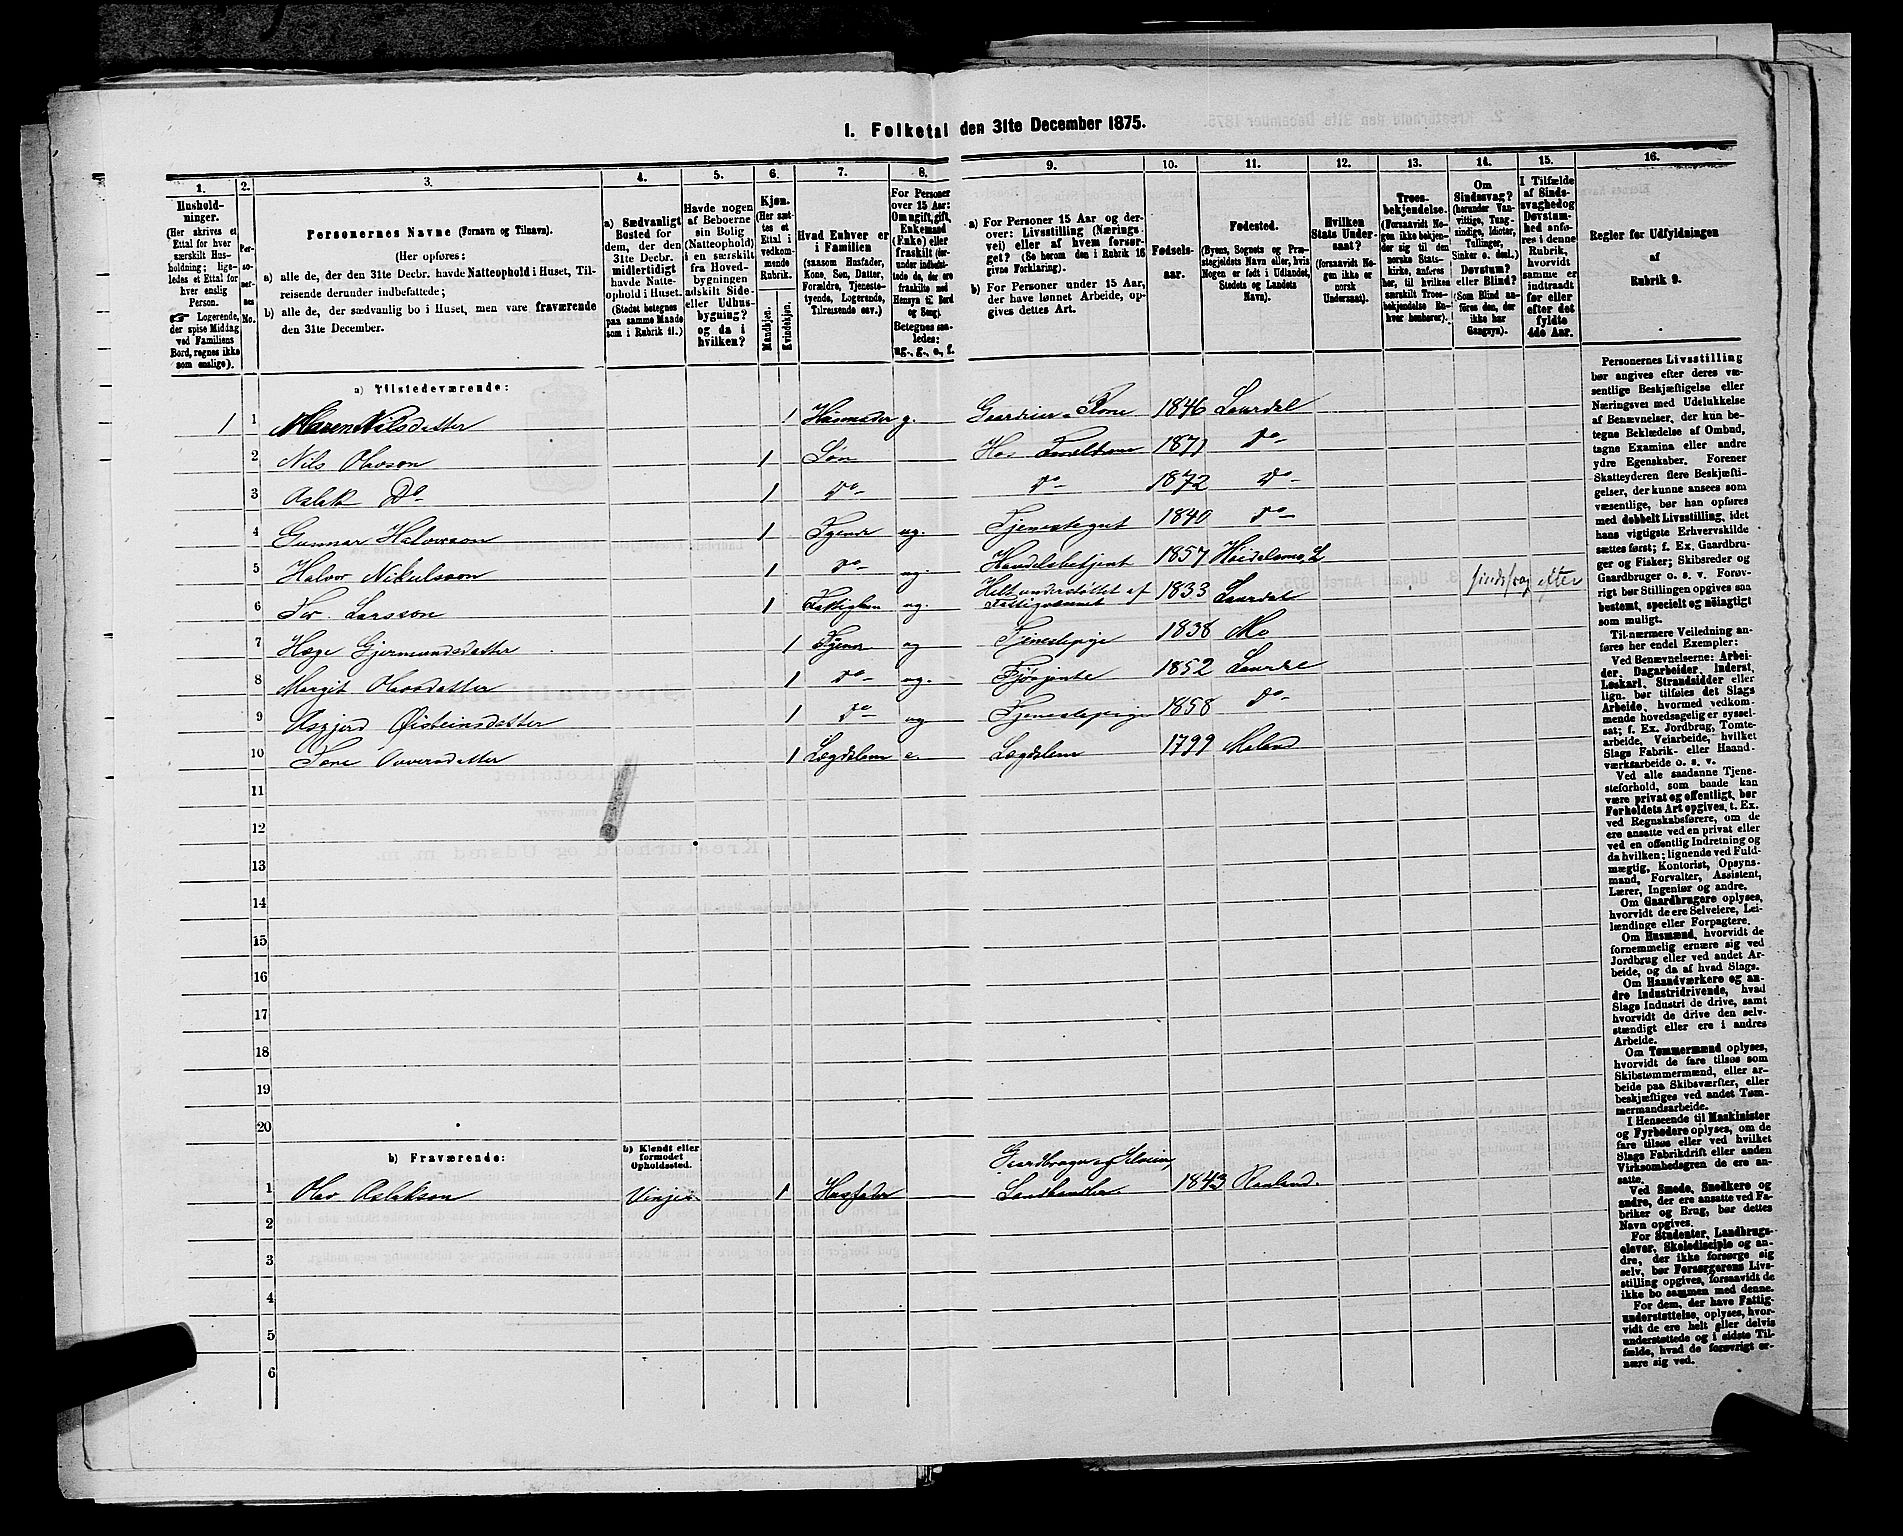 1. Folketal den 31te December 1875.
1.
2.
3.
4.
5.
6.
7.
8.
9.
10.
11.
12.
13.
14.
15.
16.
Hushold-
ninger.
(Her skrives et
Ettal for hver
særskilt Hus-
holdning; lige-
ledes et Ettal for
hver enslig
Person.
☞ Logerende,
der spise Middag
ved Familiens
Bord, regnes ikke
som enslige).
Per-
so-
ner-
nes
No.
Personernes Navne (Fornavn og Tilnavn).
(Her opføres:
a) alle de, der den 31te Decbr. havde Natteophold i Huset, Til-
reisende derunder indbefattede;
b) alle de, der sædvanlig bo i Huset, men vare fraværende
den 31te December.
a) Sædvanligt
Bosted for
dem, der den
31te Decbr.
midlertidigt
havde Natte-
ophold i Huset.
(Stedet betegnes
paa samme Maade
som i Rubrik 11.)
Havde nogen
af Beboerne
sin Bolig
(Natteophold)
i en særskilt
fra Hoved-
bygningen
adskilt Side-
eller Udhus-
bygning?
og da i
hvilken?
Kjøn.
(Her sæt-
tes et
Ettal i
vedkom-
mende
Rubrik.
Mandkjøn.
Kvindekjøn.
Hvad Enhver er
i Familien
(saasom Husfader,
Kone, Søn, Datter,
Forældre, Tjeneste-
tyende, Logerende,
Tilreisende osv.)
For Personer
over 15 Aar:
Om ugift, gift,
Enkemand
(Enke) eller
fraskilt (her-
under indbefat-
tede de, der ere
fraskilte med
Hensyn til Bord
og Seng).
Betegnes saa-
ledes:
ug., g., e., f.
a) For Personer 15 Aar og der-
over: Livsstilling (Nærings-
vei) eller af hvem forsør-
get? (Se herom den i Rubrik 16
givne Forklaring).
b) For Personer under 15 Aar,
der have lønnet Arbeide, op-
gives dettes Art.
Fødsels-
aar.
Fødested.
(Byens, Sognets og Præ-
stegjeldets Navn eller, hvis
Nogen er født i Udlandet,
Stedets og Landets
Navn).
Hvilken
Stats Under-
saat?
(forsaavidt No-
gen ikke er
norsk
Undersaat).
Troes-
bekjendelse.
(Forsaavidt No-
gen ikke bekjen-
der sig til den
norske Stats-
kirke, anføres
her, til hvilken
særskilt Troes-
bekjendelse En-
hver henhører).
Om
Sindssvag?
(herunder Van-
vittige, Tung-
sindige, Idioter,
Tullinger,
Sinker o. desl.).
Døvstum?
eller Blind?
(Som Blind an-
føres den, der
ikke har
Gangsyn).
I Tilfælde
af Sinds-
svaghed og
Døvstum-
hed anfø-
res i denne
Rubrik,
hvorvidt
samme er
indtraadt
før eller
efter det
fyldte
4de Aar.
Regler for Udfyldningen
af
Rubrik 9.
a) Tilstedeværende:
1 1 Maren Nilsdatter 1 Husmoder g. Gaardeier- Kone 1846 Laurdal
2 Nils Olavson 1 Søn Hos Forældrene 1871 Do
3 Aslak Do 1 Do Do 1872 Do
4 Gunnar Halvorson 1 Tjener ug. Tjenestegut 1840 Do
5 Halvor Nikulsson 1 Do ug. Handelsbetjent 1857 Høidalsmo, L
6 Tor Larsson 1 Fattiglem ug. Helt understøttet af Fattigvæsnet 1833 Laurdal Sindssvag efter
7 Hæge Gjermundsdatter 1 Tjener ug Tjenestepige 1838 Mo
8 Margit Olavsdatter 1 Do ug. 1852 Laurdal
9 Asgjerd Øisteinsdatter 1 Do ug Tjenestepige 1858 Do
10 Tone 1 Lægdslem e. Lægdslem 1799 Maland
11
12
13
14
15
16
17
18
19
20
b) Fraværende:
b) Kjendt eller
formodet
Opholdssted.
Gaardbruger
1 Olav Aslakson Vinje 1 Husfader Landhandler 1843 Rauland.
2
3
4
5
6
Personernes Livsstilling
bør angives efter deres væ-
sentlige Beskjæftigelse eller
Næringsvei med Udelukkelse
af Benævnelser, der kun be-
tegne Beklædelse af Ombud,
tagne Examina eller andre
ydre Egenskaber. Forener
Skatteyderen flere Beskjæfti-
gelser, der kunne ansees som
væsentlige, bør han opføres
med dobbelt Livsstilling, idet
hans vigtigste Erhvervskilde
sættes først; f. Ex. Gaardbru-
ger og Fisker; Skibsreder og
Gaardbruger o. s. v. Forøv-
rigt bør Stillingen opgives saa
bestemt, specielt og nøiagtigt
som muligt.
Til nærmere Veiledning an-
føres her endel Exempler:
Ved Benævnelserne: Arbei-
der, Dagarbeider, Inderst,
Løskarl, Strandsidder eller
lign. bør tilføies det Slags
Arbeide, hvormed vedkom-
mende hovedsagelig er syssel-
sat; f. Ex. Jordbrug, Tomte-
arbeide, Veiarbeide, hvilket
Slags Fabrik- eller Haand-
værksarbeide o. s. v.
Ved alle saadanne Tjene-
steforhold, som baade kan
være privat og offentligt, bør
Forholdets Art opgives, t. Ex.
ved Regnskabsførere, om de
ere ansatte ved en privat eller
ved en offentlig Indretning og
da hvilken; lignende ved Fuld-
mægtig, Kontorist, Opsyns-
mand, Forvalter, Assistent,
Lærer, Ingeniør og andre.
Om Gaardbrugere oplyses,
hvorvidt de ere Selveiere, Lei-
lændinge eller Forpagtere.
Om Husmænd, hvorvidt de
fornemmelig ernære sig ved
Jordbrug eller ved andet Ar-
beide, og da af hvad Slags.
Om Haandværkere og an-
dre Industridrivende, hvad
Slags Industri de drive, samt
hvorvidt de drive den selv-
stændigt eller ere i andres
Arbeide.
Om Tømmermænd oplyses,
hvorvidt de fare tilsøs som
Skibstømmermænd, eller ar-
beide paa Skibsværfter, eller
beskjæftiges ved andet Tøm-
mermandsarbeide.
I Henseende til Maskinister
og Fyrbødere oplyses, om de
fare tilsøs eller ved hvilket
Slags Fabrikdrift eller anden
Virksomhedsgren de ere an-
satte.
Ved Smede, Snedkere og
andre, der ere ansatte ved Fa-
briker og Brug, bør dettes
Navn opgives.
For Studenter, Landbrugs-
elever, Skoledisciple og an-
dre, der ikke forsørge sig
selv, bør Forsørgerens Livs-
stilling opgives, forsaavidt de
ikke bo sammen med denne.
For dem, der have Fattig-
understøttelse, oplyses, hvor-
vidt de ere helt eller delvis
understøttede og i sidste Til-
fælde, hvad de forøvrigt er-
nære sig ved.